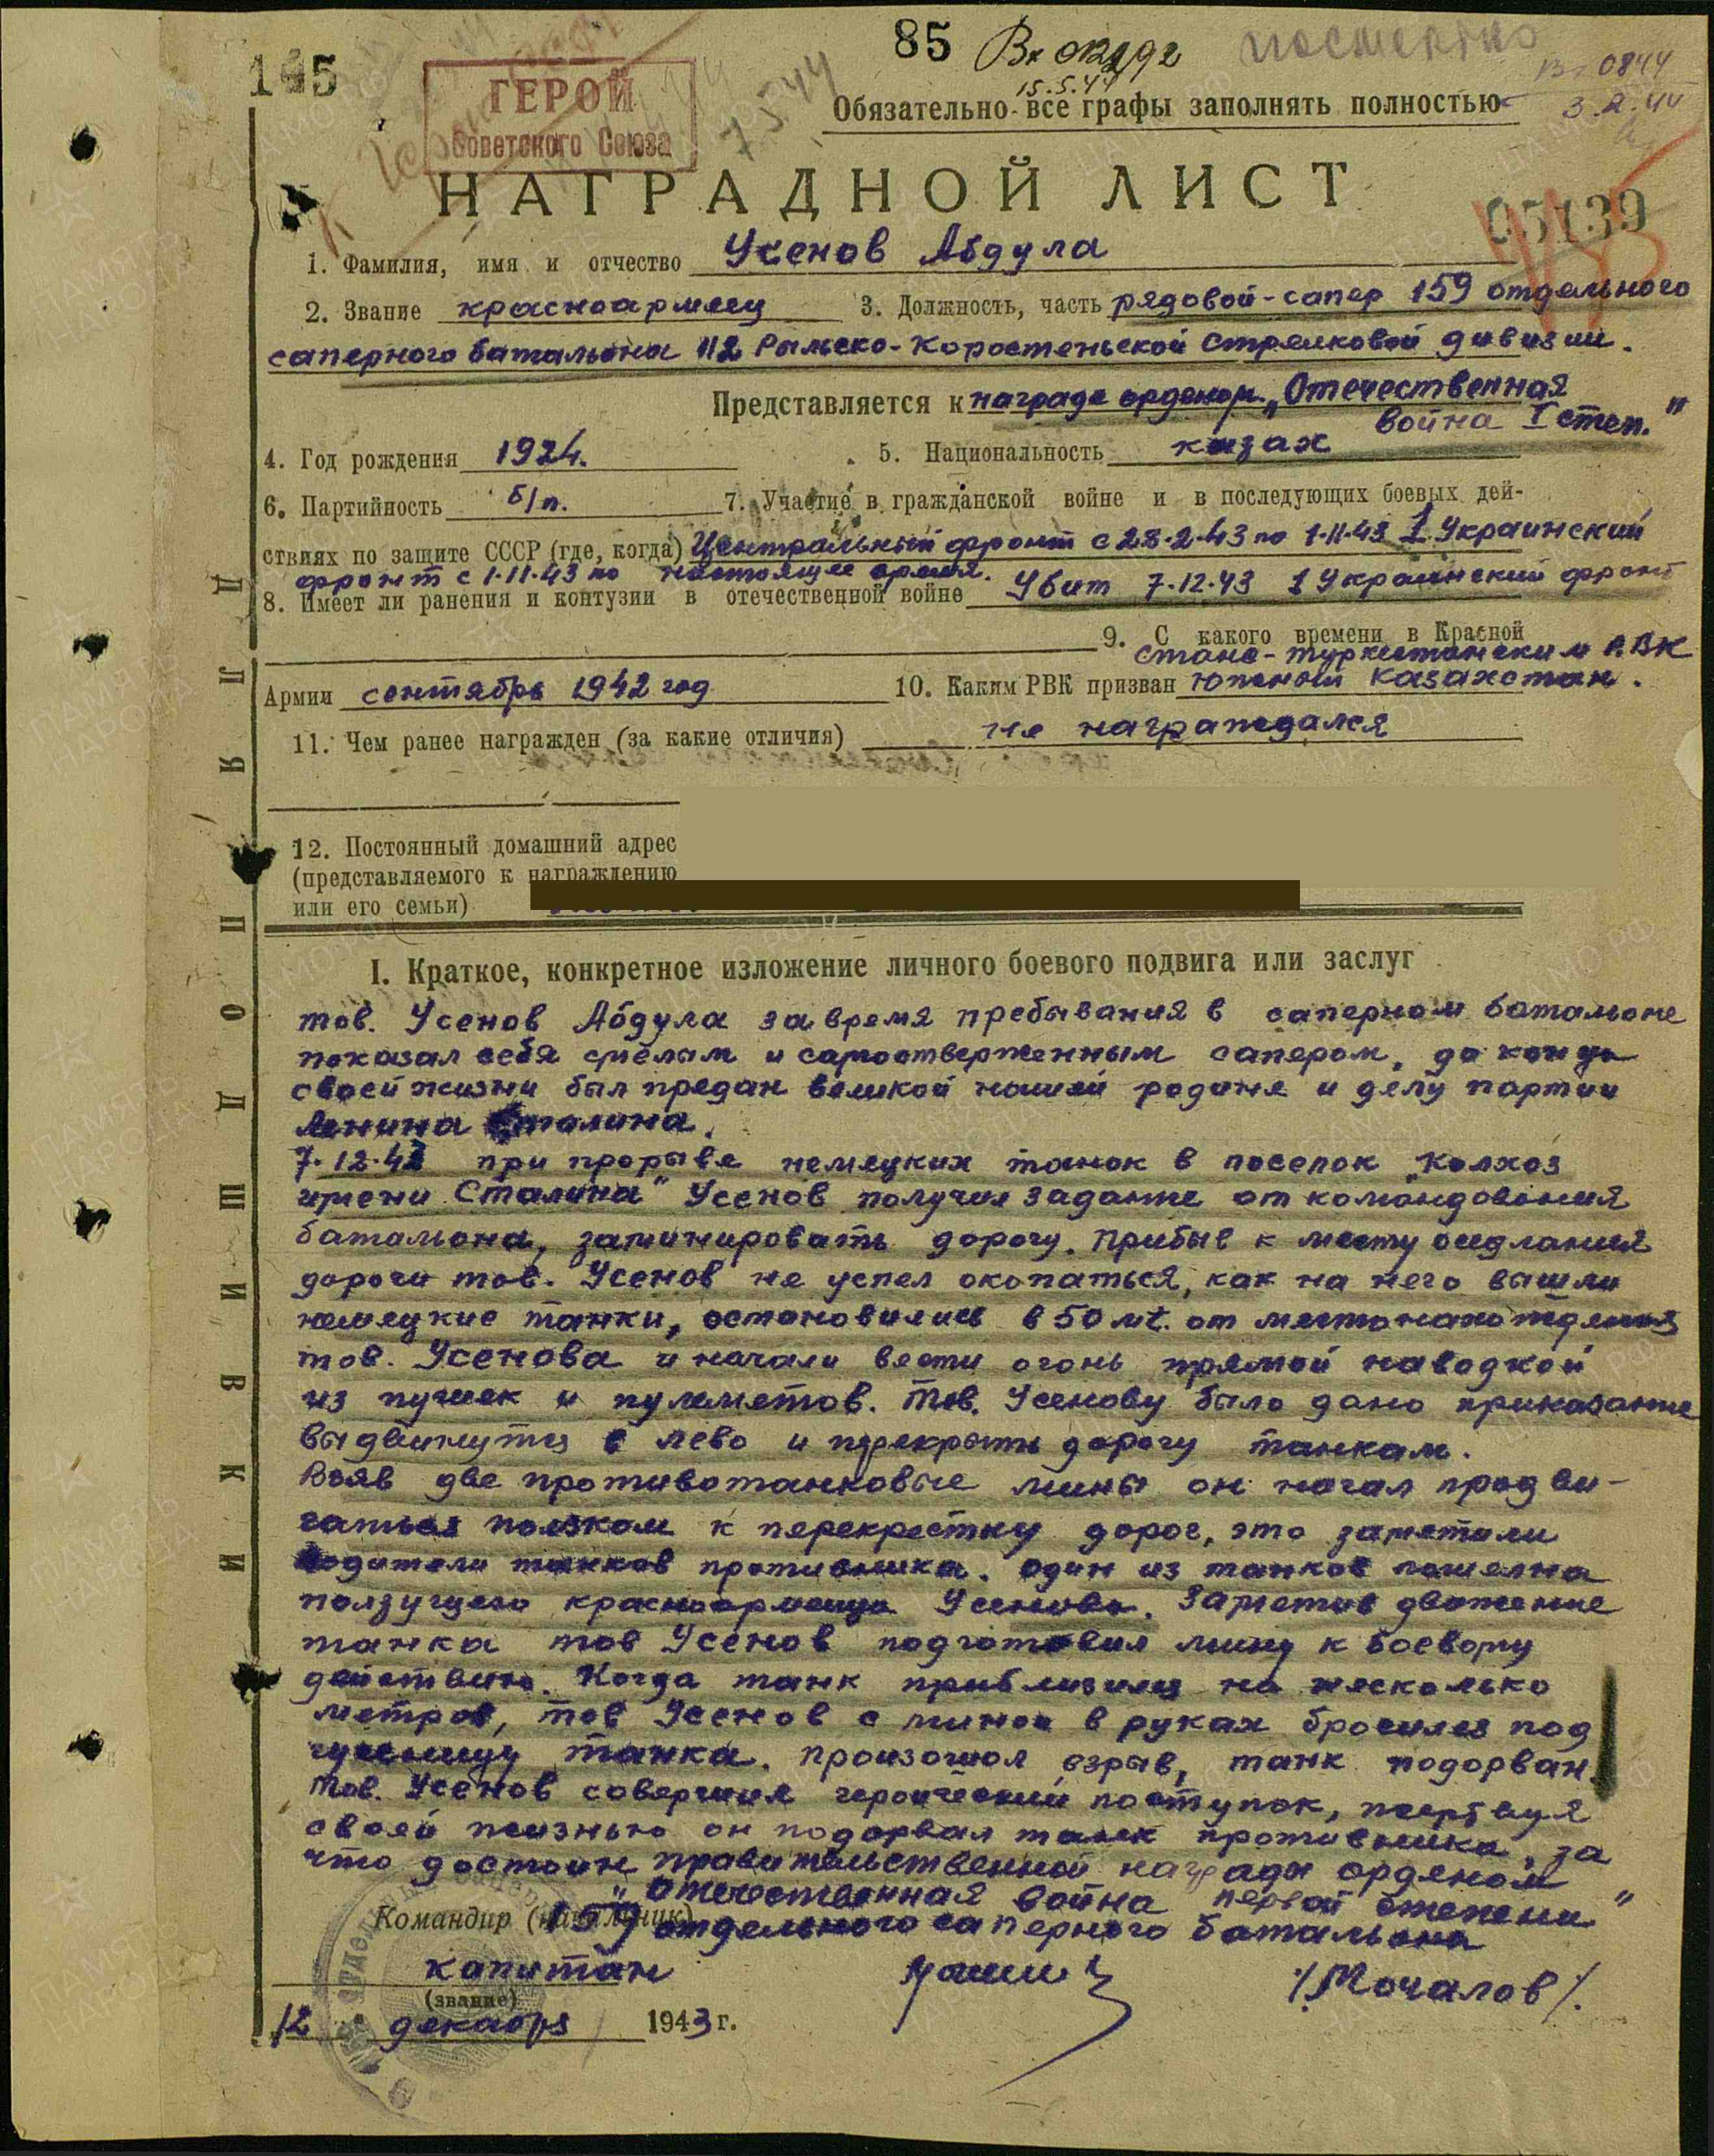 145
85
Вк окруж
посмертно
ГЕРОЙ
Советского Союза
15.5.44
7.5.44
0844
3.2.44
Обязательно все графы заполнять полностью
НАГРАДНОЙ ЛИСТ
05139
1. Фамилия, имя и отчество Усенов Абдула
2. Звание красноармеец 3. Должность, часть рядовой-сапер 159 отдельного
саперного батальона 112 Рыльско-Коростеньской стрелковой дивизии.
Представляется к награде орденом „Отечественная
война I степ."
4. Год рождения 1924. 5. Национальность казах
6. Партийность б/п. 7. Участие в гражданской войне и в последующих боевых дей-
ствиях по защите СССР (где, когда) Центральный фронт с 28.2.43 по 1.11.43 1 Украинский
фронт с 1.11.43 по настоящее время.
8. Имеет ли ранения и контузии в отечественной войне Убит 7.12.43 1 Украинский фронт
9. С какого времени в Красной
Армии сентябрь 1942 год 10. Каким РВК призван Стано-туркестанским РВК
Южный Казахстан.
11. Чем ранее награжден (за какие отличия) не награждался
12. Постоянный домашний адрес
(представляемого к награждению
или его семьи)
I. Краткое, конкретное изложение личного боевого подвига или заслуг
тов. Усенов Абдула за время пребывания в саперном батальоне
показал себя смелым и самоотверженным сапером, до конца
своей жизни был предан великой нашей родине и делу партии
Ленина Сталина.
7.12.43 при прорыве немецких танок в поселок „Колхоз
имени Сталина" Усенов получил задание от командования
батальона, заминировать дорогу. Прибыв к месту оседлания
дороги тов. Усенов не успел окопаться, как на него вышли
немецкие танки, остановились в 50 мт. от местонахождения
тов. Усенова и начали вести огонь прямой наводкой
из пушек и пулеметов. Тов. Усенову было дано приказание
выдвинутся в лево и перекрыть дорогу танкам.
Взяв две противотанковые мины он начал продви-
гаться ползком к перекрестку дорог, это заметили
водители танков противника. Один из танков пошел на
ползущего красноармейца Усенова. Заметив движение
танка тов Усенов подготовил мину к боевому
действию. Когда танк приблизился на несколько
метров, тов Усенов с миной в руках бросился под
гусеницу танка. произошол взрыв, танк подорван.
Тов. Усенов совершил героический поступок, жертвуя
своей жизнью он подорвал танк противника, за
что достоин правительственной награды орденом
„Отечественная война первой степени"
Командир (начальник) 159 отдельного саперного батальона
капитан
/Мочалов/.
(звание)
12 декабря 1943 г.
ДЛЯ ПОДШИВКИ